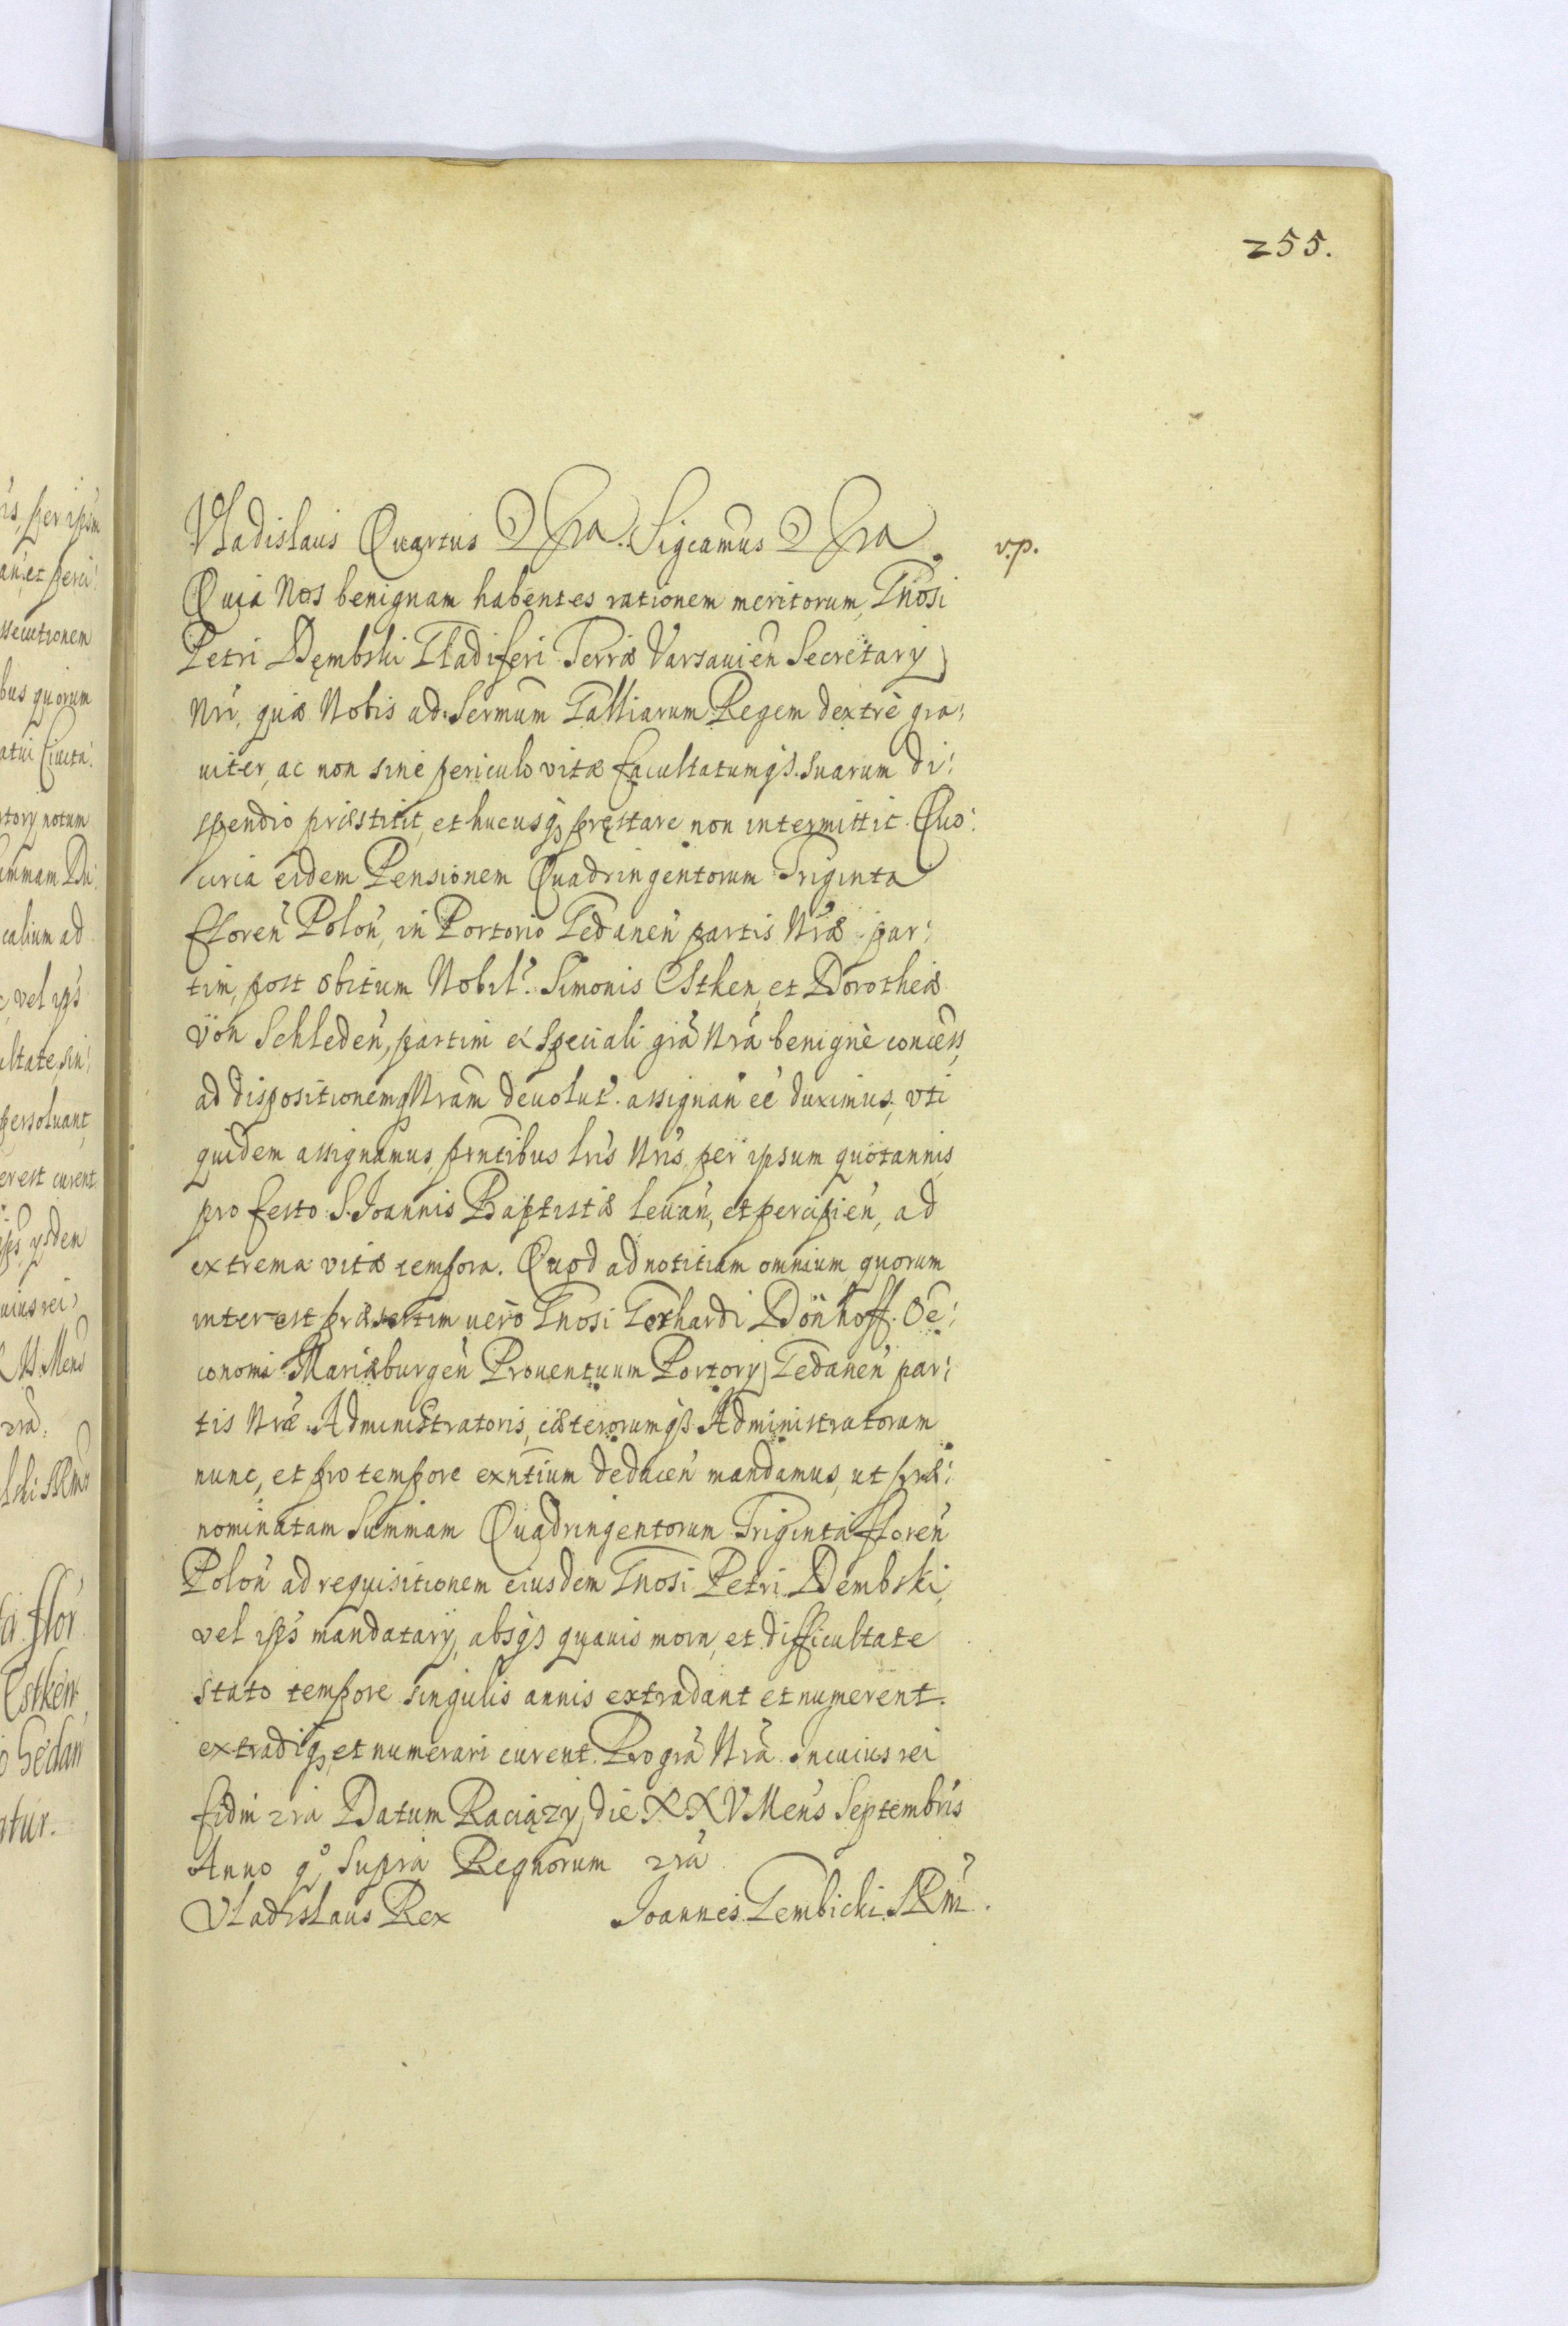 255.
Vladislaus Quartus D Gra. Sigcamus D Gra v.p.
Quia Nos benignam habentes rationem meritorum, Gnosi
Petri Dęmbski Gladiferi Terræ Varsauien̄ Secretary
Nri, quæ Nobis ad Sermum Galliarum Regem dextrè gra:
uiter, ac non sine periculo vitæ facultatumqꝫ suarum di:
spendio præstitit, et hucusqꝫ pręstare non intermittit. Quo:
circa eidem Pensionem Quadringentorum Triginta
floren̄ Polon̄, in Portorio Gedanen̄ partis Nræ par:
tim, post obitum Nobil. Simonis Estken, et Dorotheæ
von Schleden̄, partim ex speciali grã Nrã benignè concess,
ad dispositionemqꝫ Nram deuolut. assignan̄ eẽ duximus, vti
quidem assignamus, pr̃ntibus lr̃is Nris, per ipsum quotannis,
pro festo S. Joannis Baptistæ leuan̄, et percipien̄, ad
extrema vitæ tempora. Quod ad notitiam omnium, quorum
interest præsertim uero Gnosi Gerhardi Dönhoff. Oe:
conomi Mariæburgen̄ Prouentuum Portory Gedanen̄ par:
tis Nræ Administratoris, cæterorumqꝫ Administratorum
nunc, et pro tempore exñtium deducen̄ mandamus, ut præ:
nominatam Summam Quadringentorum Triginta floren̄
Polon̄ ad requisitionem eiusdem Gnosi Petri Dembski,
vel ips̃ mandatary, absqꝫ quauis mora, et difficultate
stato tempore singulis annis extradant et numerent.
extradiqꝫ, et numerari curent. Pro grã Nrã. In cuius rei
fidm̃ 2ra Datum Raciązy, die XXV Mens Septembris
Anno qo supra Regnorum 2rã
Vladislaus Rex Joannes Gembicki SRM.